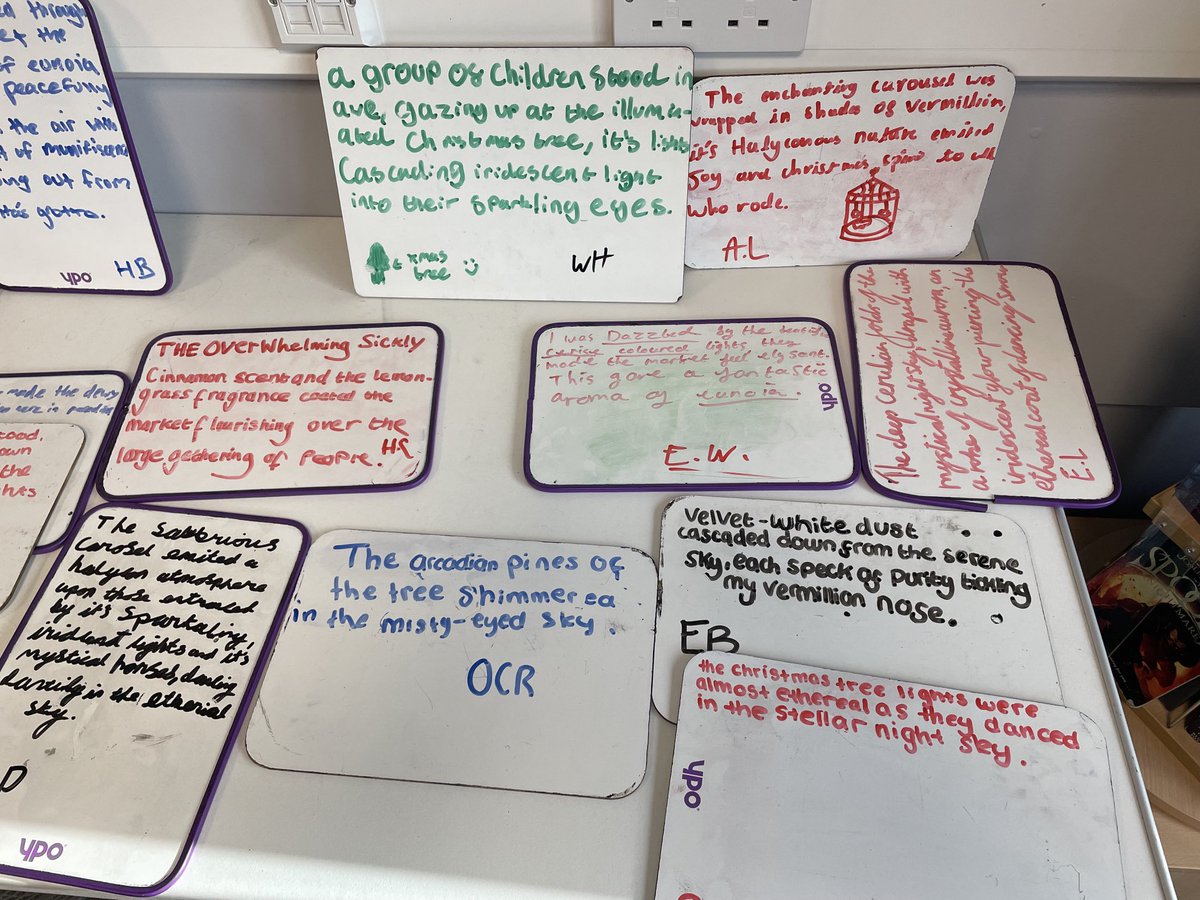 through
the
of eunoia
peacefully
the air with
of munifiscence
ing out from
grotto.
ypo HB
a group of children stood in
awe, gazing up at the illumin-
ated Christmas tree, it's lights
Cascading iridescent light
into their sparkling eyes.
xmas
tree
WH
The enchanting carousel was
wrapped in shades of vermillion,
it's Halyconous nature emited
Joy and christmas spirit to all
who rode.
A.L
made the dewy
THE OVERWhelming Sickly
Cinnamon scent and the lemon-
grass fragrance coated the
market flourishing over the
large gathering of People.
HR
I was Dazzled by the beautiful
cerise coloured lights they
made the market feel elysant.
This gave a fantastic
aroma of eunoia.
ypo
E.W.
The deep cerulian folds of the
mystical night sky, draped with
a riche of crystalline aurora, an
iridescent glow piercing the
ethereal coat of dancing snow
E.L
own
the
The Salubrious
Carosel emited a
halycn atmosphere
upon those entraced
by it's Sparkaling,
it's
mystical horses, dancing
in the etherial
sky.
D
ypo
The arcadian pines of
the tree shimmered
in the misty-eyed sky.
OCR
Velvet-white dust
cascaded down from the serene
sky, each speck of purity tickling
my vermillion nose.
EB
the christmas tree lights were
almost ethereal as they danced
in the stellar night sky.
ypo